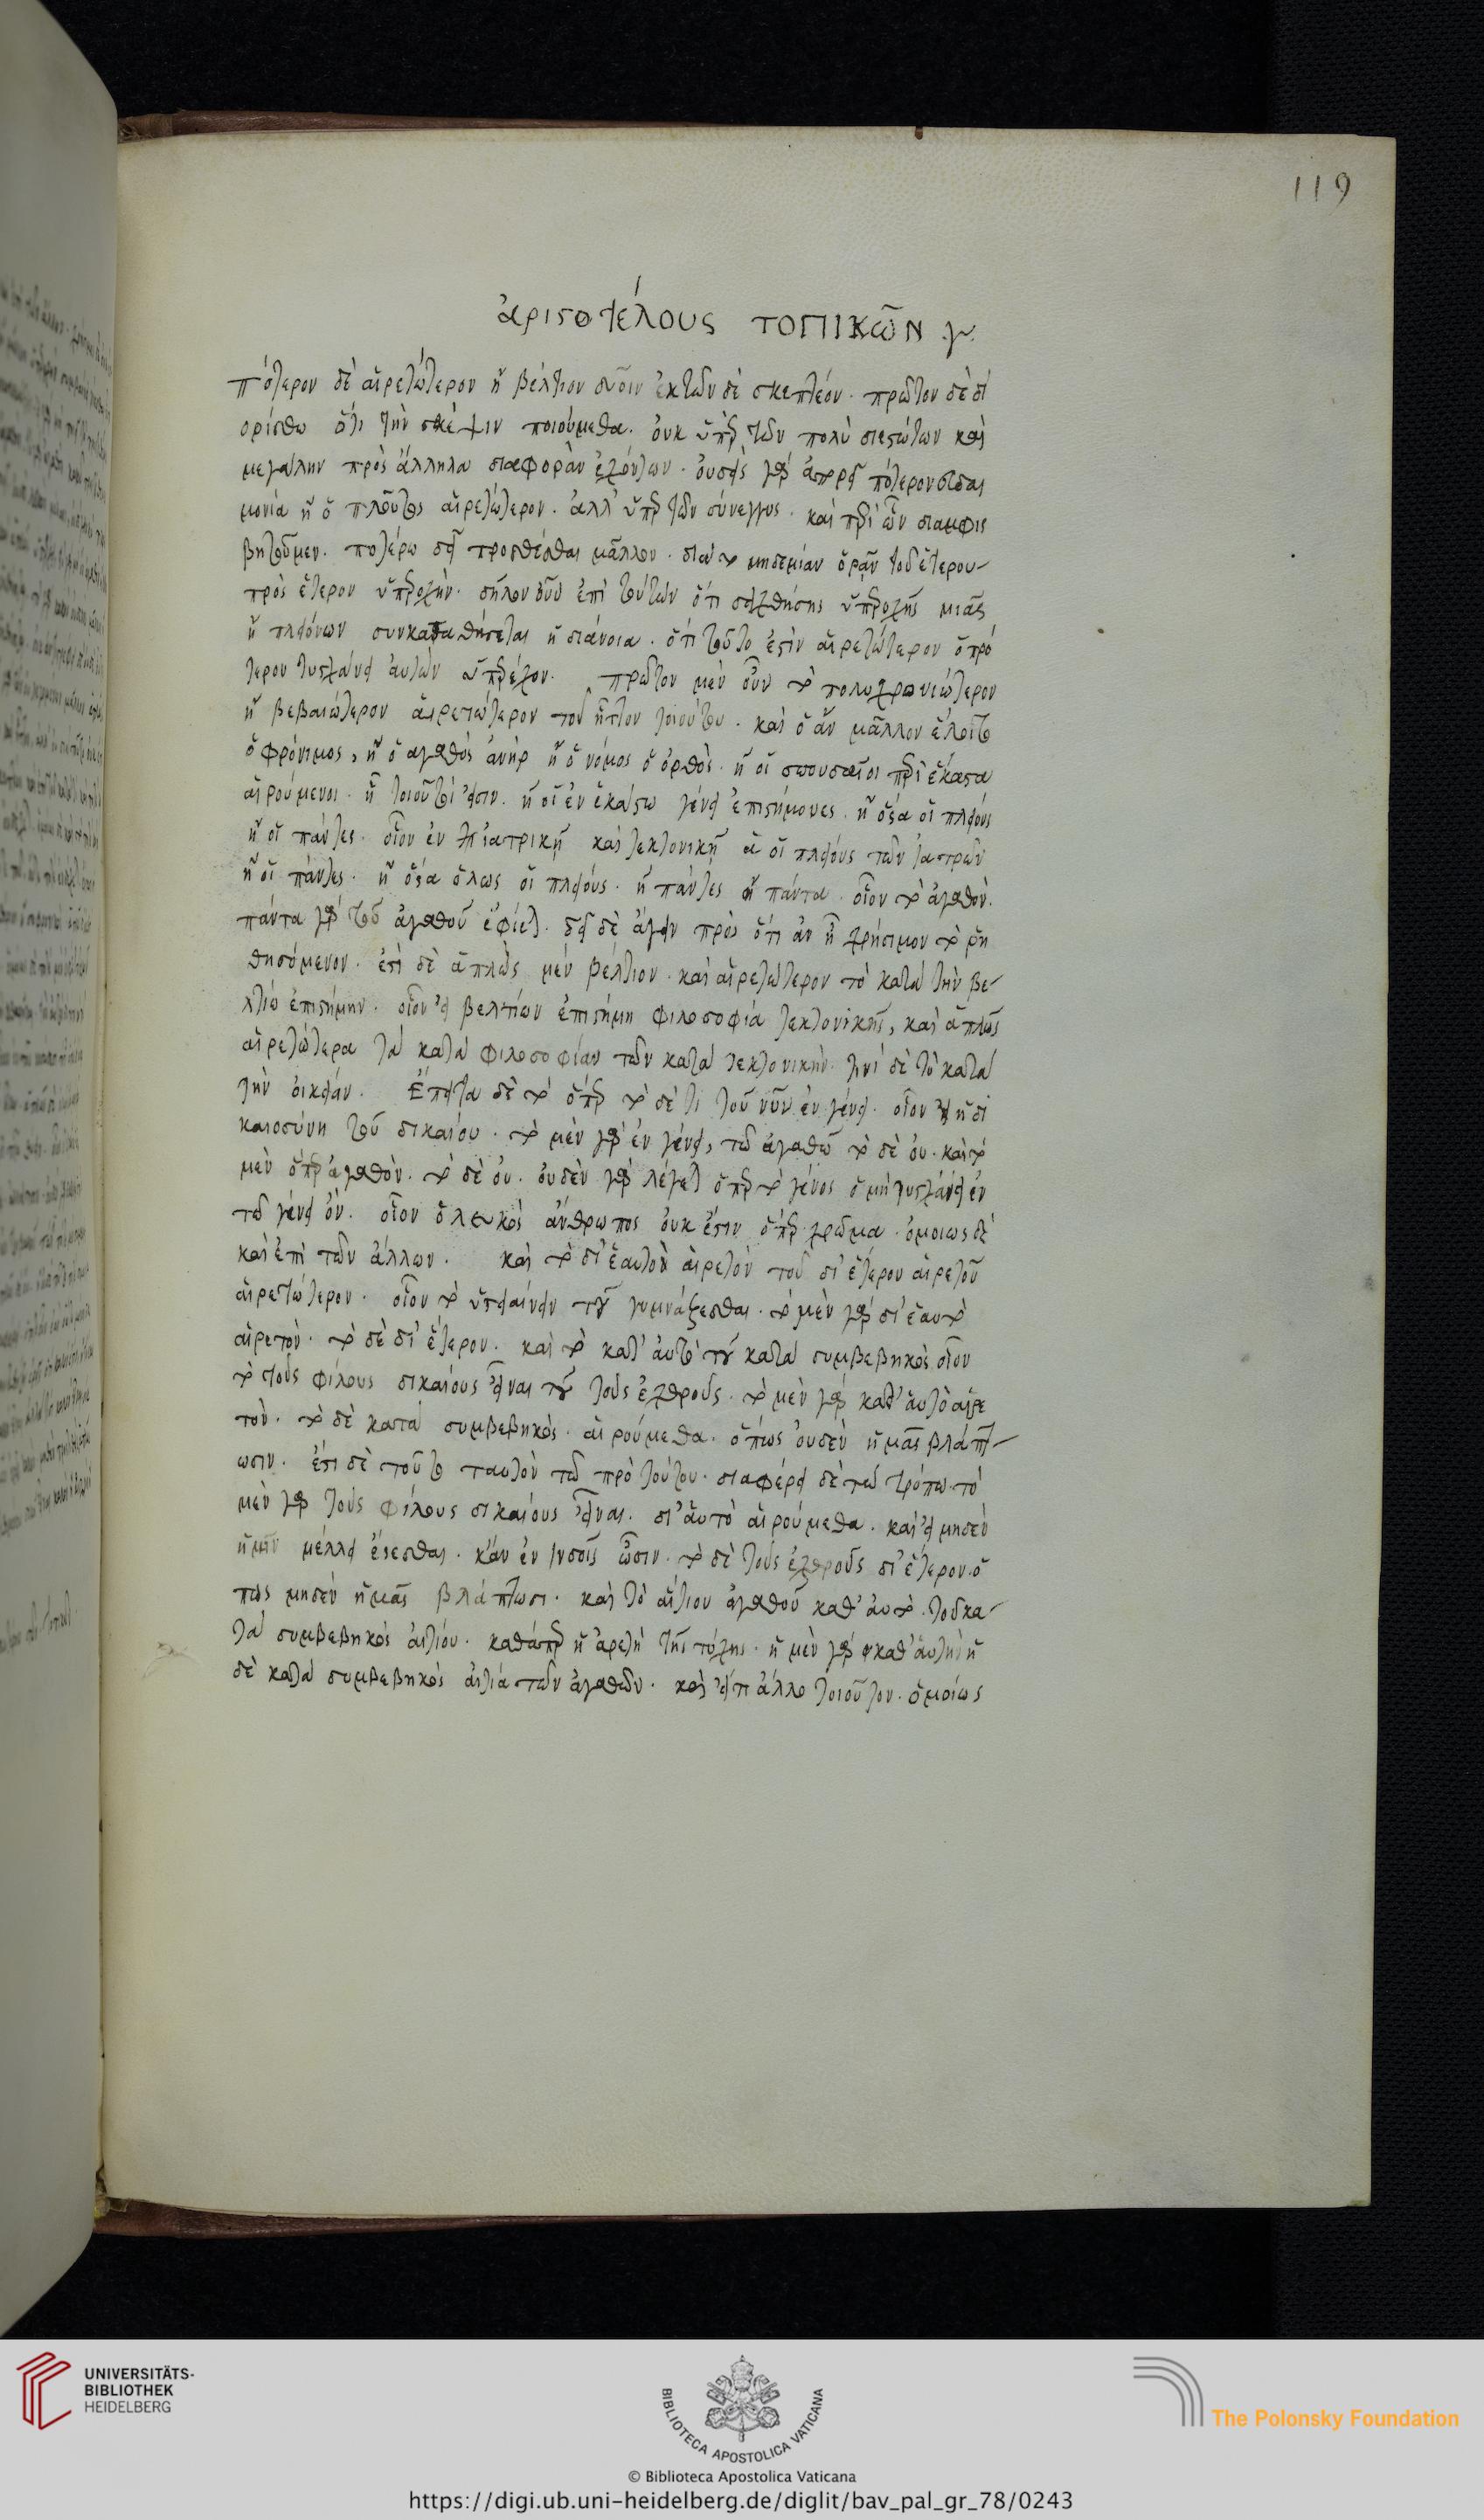 119
ἀριστοτέλους τοπικῶν γ
πότερον δὲ αἱρετώτερον ἢ βέλτιον δυοῖν ἐκ τῶν δὲ σκεπτέον. πρῶτον δὲ δι
ορίσθω ὅτι τὴν σκέψιν ποιούμεθα. οὐκ ὑπὲρ τῶν πολὺ διεστώτων καὶ
μεγάλην πρὸς ἄλληλα διαφορὰν ἐχόντων. οὐδεὶς γὰρ ἀπορεῖ πότερον ευδαι
μονία ἢ ὁ πλοῦτος αἱρετώτερον. ἀλλ' ὑπὲρ τῶν σύνεγγυς. καὶ περὶ ὧν διαμφισ
βητοῦμεν. ποτέρω δεῖ προσθέσθαι μᾶλλον. διὰ τὸ μηδεμίαν ὁρᾶν τοῦ ἑτέρου
πρὸς ἕτερον ὑπεροχὴν. δῆλον οὖν ἐπὶ τούτων ὅτι δειχθείσης ὑπεροχῆς μιᾶς
ἢ πλειόνων συνκαταθήσεται ἡ διάνοια. ὅτι τοῦτο ἐστὶν αἱρετώτερον ὁπρό
τερον τυγχάνει αὐτῶν ὑπερέχον. πρῶτον μὲν οὖν τὸ πολυχρονιώτερον
ἢ βεβαιώτερον αἱρετώτερον τοῦ ἧττον τοιούτου. καὶ ὃ ἂν μᾶλλον ἕλοιτο
ὁ φρόνιμος, ἢ ὁ ἀγαθὸς ἀνὴρ ἢ ὁ νόμος ὁ ὀρθὸς. ἢ οἱ σπουδαῖοι περὶ ἕκαστα
αἱρούμενοι. ἢ τοιοῦτοί εἰσιν. ἢ οἱ ἐν ἑκάστω γένει ἐπιστήμονες. ἢ ὅσα οἱ πλείους
ἢ οἱ πάντες. οἷον ἐν ἰατρικῇ καὶ τεκτονικῇ ἃ οἱ πλείους τῶν ἰατρῶν
ἢ οἱ πάντες. ἢ ὅσα ὅλως οἱ πλείους. ἢ πάντες ἢ πάντα. οἷον τὸ ἀγαθὸν.
πάντα γὰρ τοῦ ἀγαθοῦ ἐφίεται. δεῖ δὲ ἄγειν πρὸς ὅτι ἂν ᾖ χρήσιμον τὸ ῥη
θησόμενον. ἔστι δὲ ἁπλῶς μὲν βέλτιον. καὶ αἱρετώτερον τὸ κατὰ τὴν βε
λτίω ἐπιστήμην. οἷον εἰ βελτίων ἐπιστήμη φιλοσοφία τεκτονικῆς, καὶ ἁπλῶς
αἱρετώτερα τὰ κατὰ φιλοσοφίαν τῶν κατὰ τεκτονικὴν. τινὶ δὲ τὸ κατὰ
τὴν οἰκείαν. Ἔπειτα δὲ τὸ ὅπερ τόδε τι τοῦ νῦν ἐν γένει. οἷον ἡ δι
καιοσύνη τοῦ δικαίου. τὸ μὲν γὰρ ἐν γένει, τῶ ἀγαθῶ τὸ δὲ οὐ. καὶ τὸ
μὲν ὅπερ ἀγαθὸν. τὸ δὲ οὐ. οὐδὲν γὰρ λέγεται ὅπερ τὸ γένος ὃ μὴ τυγχάνει ἐν
τῶ γένει ὂν. οἷον ὁ λευκὸς ἄνθρωπος οὐκ ἔστιν ὅπερ χρῶμα. ὁμοίως δὲ
καὶ ἐπὶ τῶν ἄλλων. καὶ τὸ δι' ἑαυτὸ αἱρετὸν τοῦ δι' ἕτερον αἱρετοῦ
αἱρετώτερον. οἷον τὸ ὑγιαίνειν τοῦ γυμνάζεσθαι. τὸ μὲν γὰρ δι' ἑαυτὸ
αἱρετὸν. τὸ δὲ δι' ἕτερον. καὶ τὸ καθ' αὑτὸ τοῦ κατὰ συμβεβηκὸς οἷον
τὸ τοὺς φίλους δικαίους εἶναι τοῦ τοὺς ἐχθροὺς. τὸ μὲν γὰρ καθ' αὑτὸ αἱρε
τὸν. τὸ δὲ κατὰ συμβεβηκὸς. αἱρούμεθα. ὅπως οὐδὲν ἡμᾶς βλάπτ
ωσιν. ἔστι δὲ τοῦτο ταυτὸν τῶ πρὸ τούτου. διαφέρει δὲ τῶ τρόπω. τὸ
μὲν γὰρ τοὺς φίλους δικαίους εἶναι. δι' αὑτὸ αἱρούμεθα. καὶ εἰ μηδὲν
ἡμῖν μέλλει ἔσεσθαι. κἂν ἐν ἰνδοῖς ὦσιν. τὸ δὲ τοὺς ἐχθροὺς δι' ἕτερον. ὅ
πως μηδὲν ἡμᾶς βλάπτωσι. καὶ τὸ αἴτιον ἀγαθοῦ καθ' αὑτὸ. τοῦ κα
τὰ συμβεβηκὸς αἰτίου. καθάπερ ἡ ἀρετὴ τῆς τύχης. ἡ μὲν γὰρ καθ' αὑτὴν ἡ
δὲ κατὰ συμβεβηκὸς αἰτία τῶν ἀγαθῶν. καὶ εἴ τι ἄλλο τοιοῦτον. ὁμοίως
UNIVERSITÄTS-
BIBLIOTHEK
HEIDELBERG
BIBLIOTECA APOSTOLICA VATICANA
© Biblioteca Apostolica Vaticana
The Polonsky Foundation
https://digi.ub.uni-heidelberg.de/diglit/bav_pal_gr_78/0243